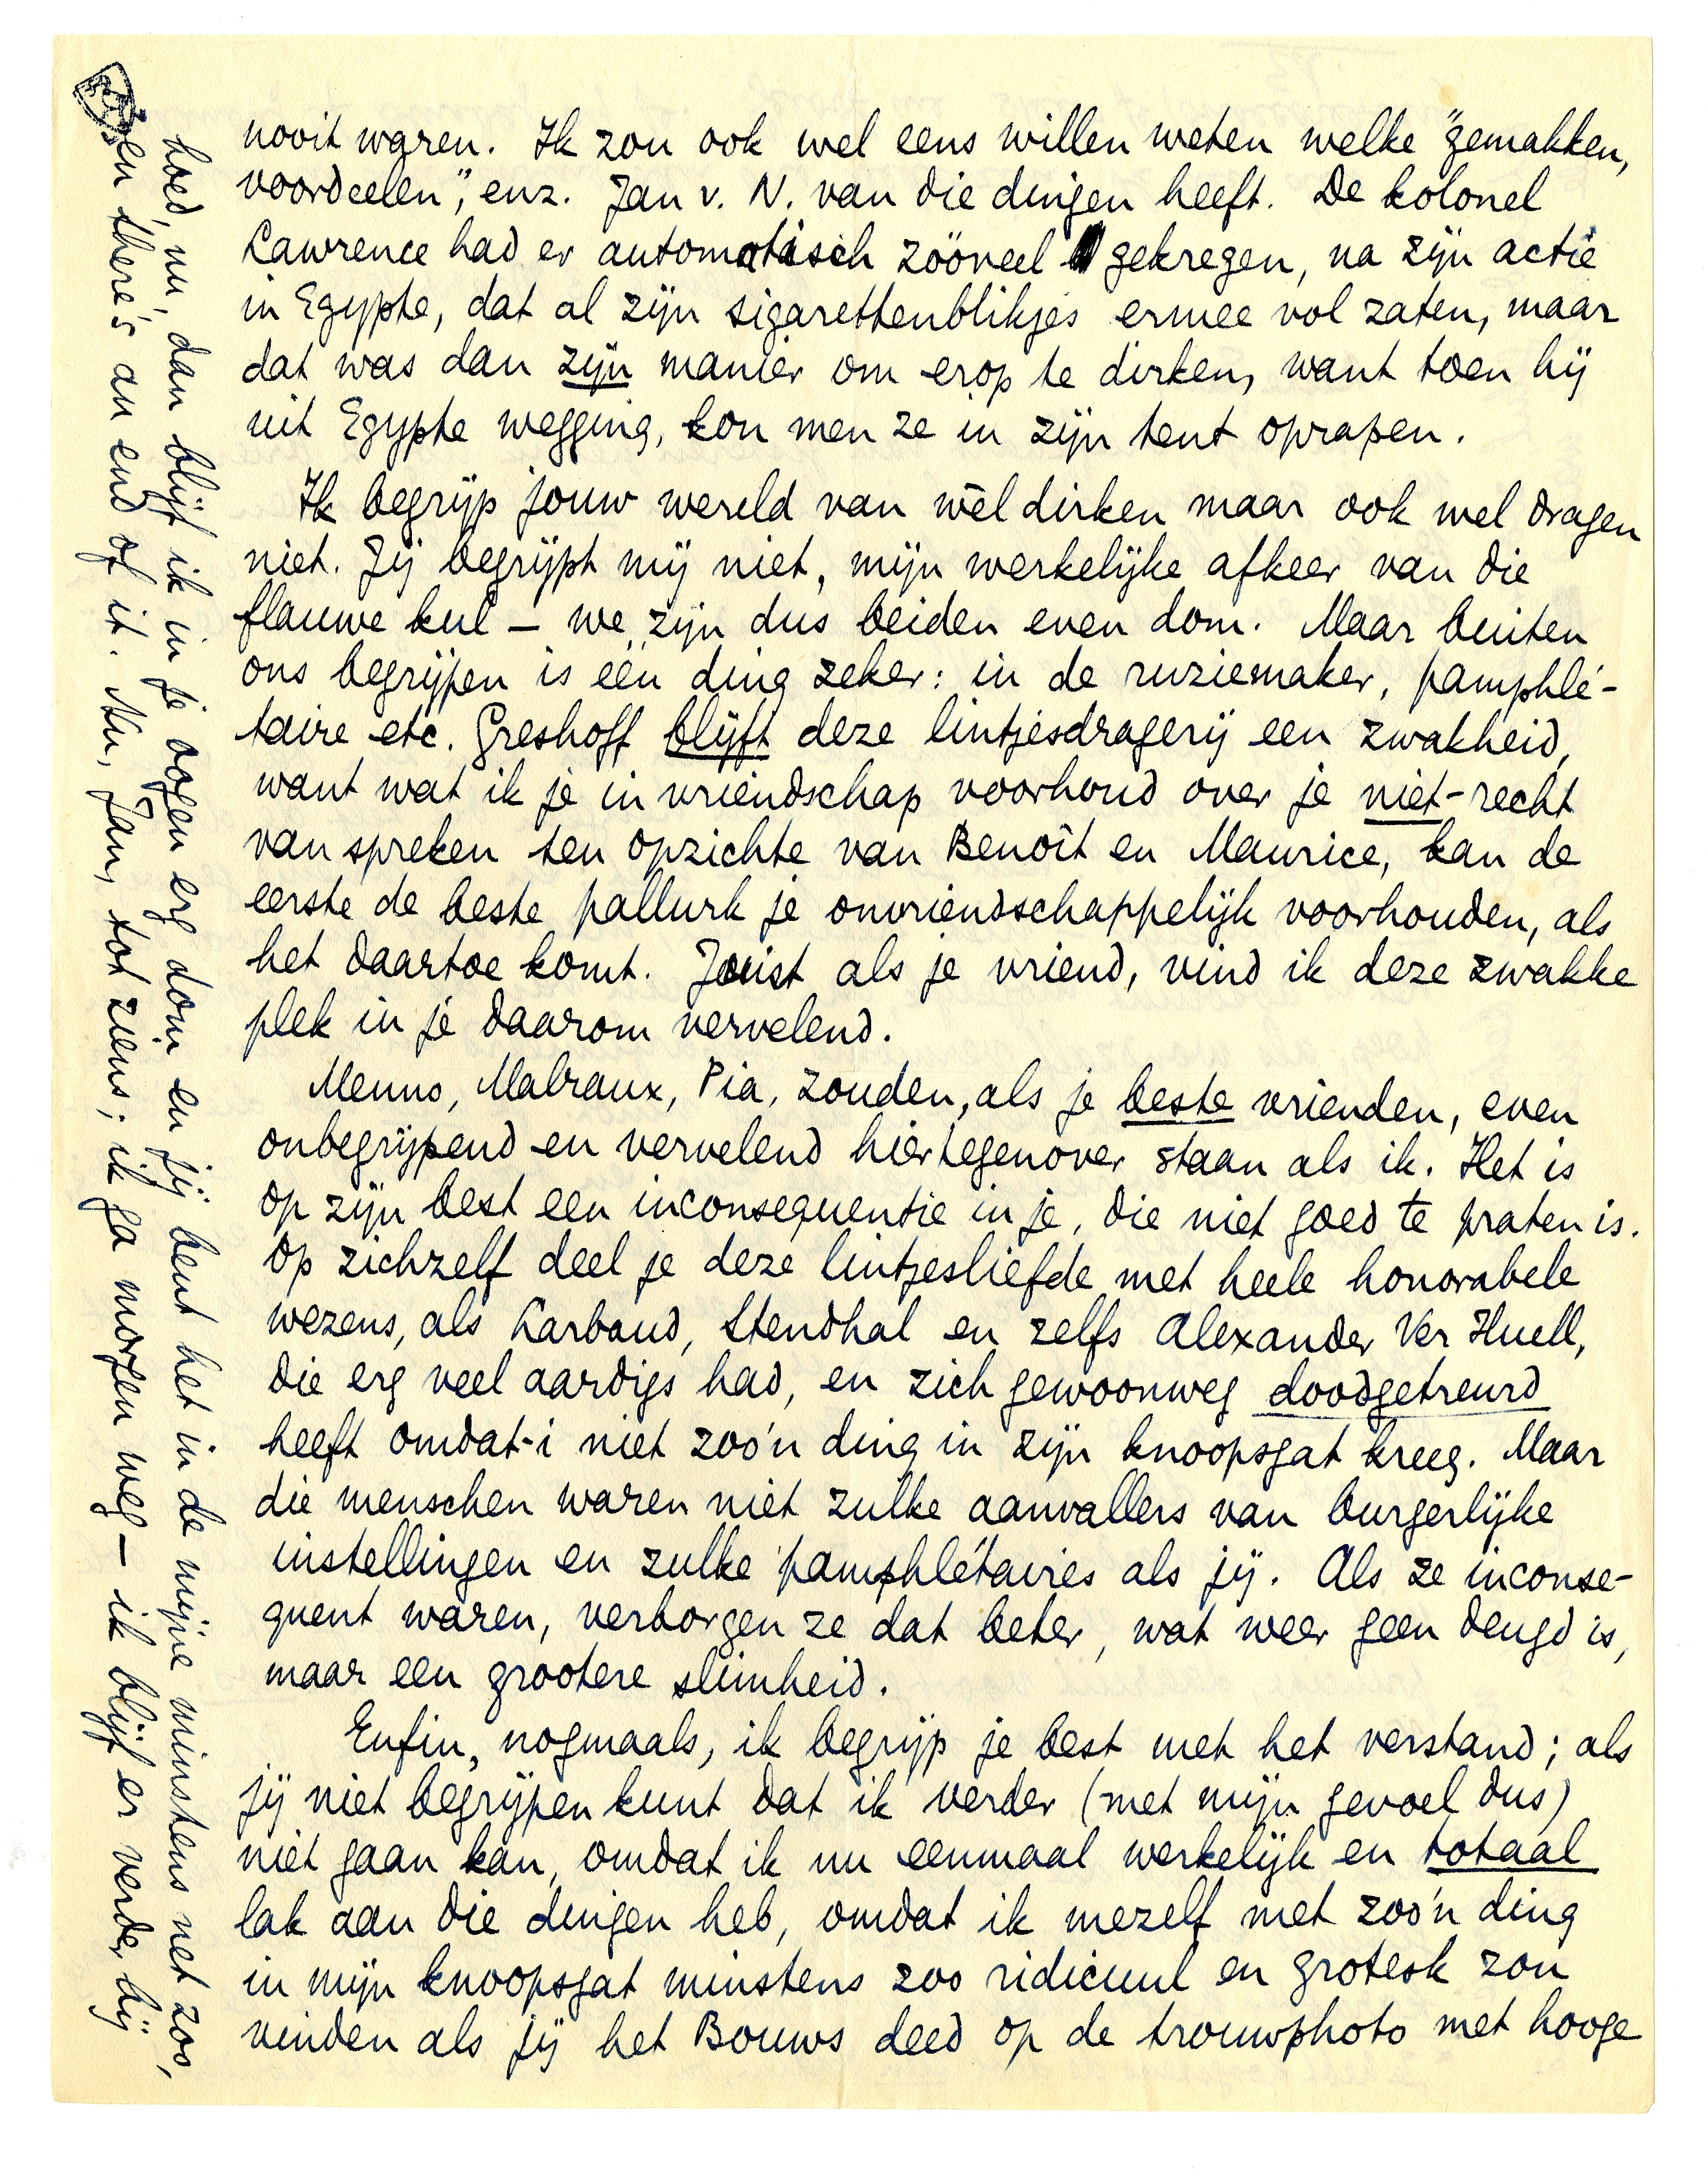 nooit waren. Ik zou ook wel eens willen weten welke "gemakken,
voordeelen", enz. Jan v. N. van die dingen heeft. De kolonel
Lawrence had er automatisch zóóveel gekregen, na zijn actie
in Egypte, dat al zijn sigarettenblikjes ermee vol zaten, maar
dat was dan zijn manier om erop te dirken, want toen hij
uit Egypte wegging, kon men ze in zijn tent oprapen.
Ik begrijp jouw wereld van wèl dirken maar ook wel dragen
niet. Jij begrijpt mij niet, mijn werkelijke afkeer van die
flauwe kul – we zijn dus beiden even dom. Maar buiten
ons begrijpen is één ding zeker: in de ruziemaker, pamphlé-
taire etc. Greshoff blijft deze lintjesdragerij een zwakheid,
want wat ik je in vriendschap voorhoud over je niet-recht
van spreken ten opzichte van Benoît en Maurice, kan de
eerste de beste pallurk je onvriendschappelijk voorhouden, als
het daartoe komt. Juist als je vriend, vind ik deze zwakke
plek in je daarom vervelend.
Menno, Malraux, Pia, zouden, als je beste vrienden, even
onbegrijpend en vervelend hiertegenover staan als ik. Het is
op zijn best een inconsequentie in je, die niet goed te praten is.
Op zichzelf deel je deze lintjesliefde met heele honorabele
wezens, als Larbaud, Stendhal en zelfs Alexander Ver Huell,
die erg veel aardigs had, en zich gewoonweg doodgetreurd
heeft omdat-i niet zoo'n ding in zijn knoopsgat kreeg. Maar
die menschen waren niet zulke aanvallers van burgerlijke
instellingen en zulke pamphlétaires als jij. Als ze inconse-
quent waren, verborgen ze dat beter, wat weer geen deugd is,
maar een grootere slimheid.
Enfin, nogmaals, ik begrijp je best met het verstand; als
jij niet begrijpen kunt dat ik verder (met mijn gevoel dus)
niet gaan kan, omdat ik nu eenmaal werkelijk en totaal
lak aan die dingen heb, omdat ik mezelf met zoo'n ding
in mijn knoopsgat minstens zoo ridicuul en grotesk zou
vinden als jij het Bouws deed op de trouwphoto met hooge
hoed, nu, dan blijf ik in je oogen erg dom en jij bent het in de mijne minstens net zoo,
en there's an end of it. Nu, Jan, tot ziens; ik ga morgen weg – ik blijf er verder bij